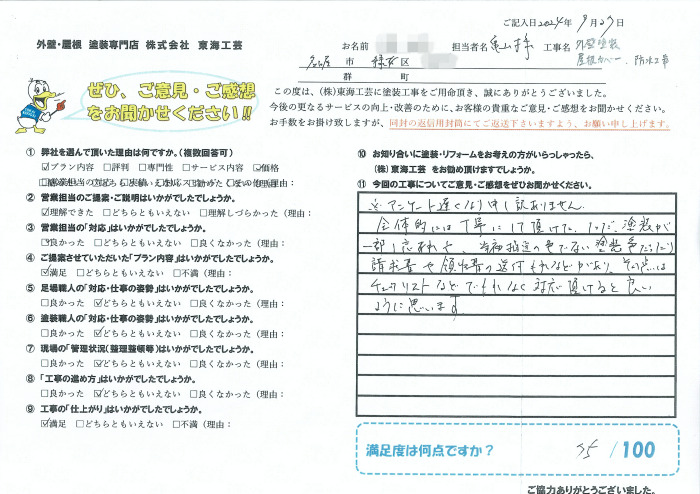 ご記入日2024年9月27日
外壁・屋根 塗装専門店 株式会社 東海工芸
お名前 担当者名 亀山様 工事名 外壁塗装
屋根カバー、防水工事
名古屋市 緑区
群 町
ぜひ、ご意見・ご感想
をお聞かせください!!
この度は、(株)東海工芸に塗装工事をご用命頂き、誠にありがとうございました。
今後の更なるサービスの向上・改善のために、お客様の貴重なご意見・ご感想をお聞かせください。
お手数をお掛け致しますが、同封の返信用封筒にてご返送下さいますよう、お願い申し上げます。
① 弊社を選んで頂いた理由は何ですか。(複数回答可)
☑プラン内容 □評判 □専門性 □サービス内容 ☑価格
② 営業担当のご提案・ご説明はいかがでしたでしょうか。
☑理解できた □どちらともいえない □理解しづらかった(理由:
③ 営業担当の「対応」はいかがでしたでしょうか。
☑良かった □どちらともいえない □良くなかった(理由:
④ ご提案させていただいた「プラン内容」はいかがでしたでしょうか。
☑満足 □どちらともいえない □不満(理由:
⑤ 足場職人の「対応・仕事の姿勢」はいかがでしたでしょうか。
□良かった ☑どちらともいえない □良くなかった(理由:
⑥ 塗装職人の「対応・仕事の姿勢」はいかがでしたでしょうか。
□良かった ☑どちらともいえない □良くなかった(理由:
⑦ 現場の「管理状況(整理整頓等)はいかがでしたでしょうか。
□良かった ☑どちらともいえない □良くなかった(理由:
⑧ 「工事の進め方」はいかがでしたでしょうか。
□良かった ☑どちらともいえない □良くなかった(理由:
⑨ 工事の「仕上がり」はいかがでしたでしょうか。
☑満足 □どちらともいえない □不満(理由:
⑩ お知り合いに塗装・リフォームをお考えの方がいらっしゃったら、
(株)東海工芸 をお勧め頂けますでしょうか。
⑪ 今回の工事についてご意見・ご感想をぜひお聞かせください。
※アンケート遅くなり申し訳ありません。
全体的には丁寧にして頂けた。ただ、塗装が
一部し忘れや、指定の色でない塗装色だったり
請求書や領収書の送付もれなどがあり、その点は
チェックリストなどでもれなく対応頂けると良い
ように思います。
満足度は何点ですか? 75/100
ご協力ありがとうございました。